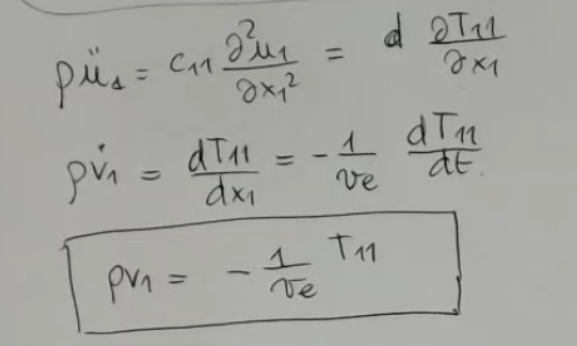 ρü₁ = c₁₁ ∂²u₁/∂x₁² = d ∂T₁₁/∂x₁
ρv̇₁ = dT₁₁/dx₁ = - 1/ve dT₁₁/dt.
ρv₁ = - 1/ve T₁₁